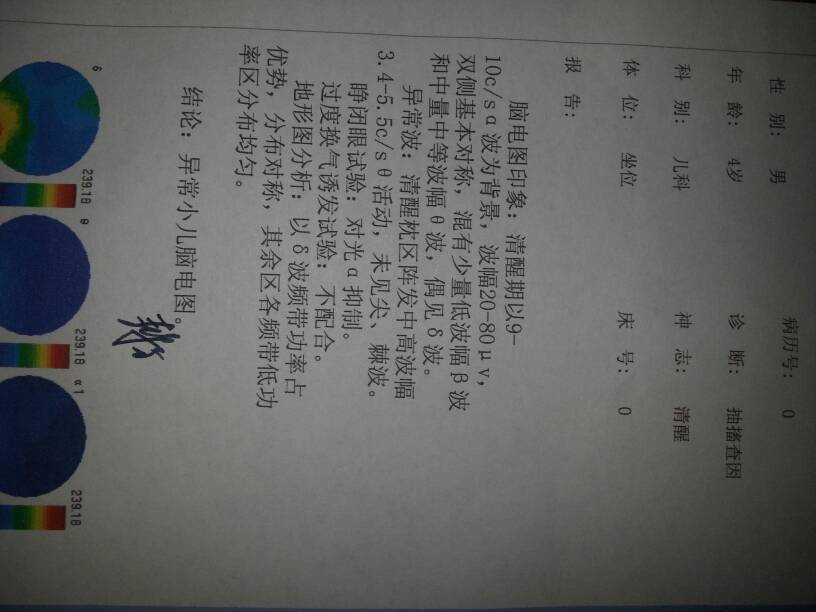 病历号: 0
性 别: 男
年 龄: 4岁 诊 断: 抽搐查因
科 别: 儿科 神 志: 清醒
体 位: 坐位 床 号: 0
报 告:
脑电图印象: 清醒期以9-
10c/sα波为背景, 波幅20-80μv,
双侧基本对称, 混有少量低波幅β波
和中量中等波幅θ波, 偶见δ波。
异常波: 清醒枕区阵发中高波幅
3.4-5.5c/sθ活动, 未见尖、棘波。
睁闭眼试验: 对光α抑制。
过度换气诱发试验: 不配合。
地形图分析: 以δ波频带功率占
优势, 分布对称, 其余区各频带低功
率区分布均匀。
结论: 异常小儿脑电图。
δ 239.18 θ 239.18 α1 239.18